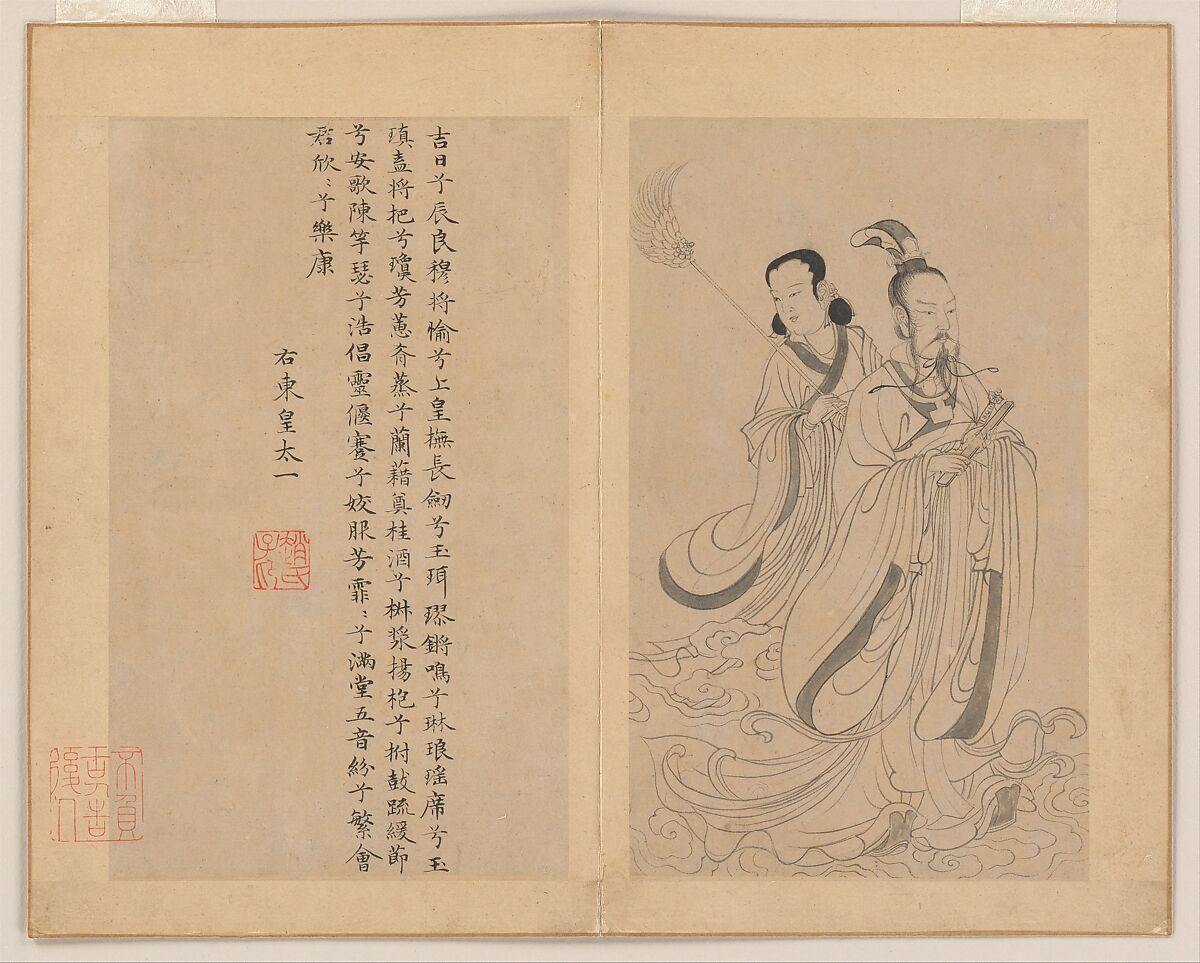 吉日兮辰良穆将愉兮上皇撫長劔兮玉珥璆鏘鳴兮琳琅瑶席兮玉
瑱盍将把兮瓊芳蕙肴蒸兮蘭藉奠桂酒兮椒漿揚枹兮拊鼓疏緩節
兮安歌陳竽瑟兮浩倡靈偃蹇兮姣服芳霏〻兮滿堂五音紛兮繁會
君欣〻兮樂康
右東皇太一
趙氏子昂